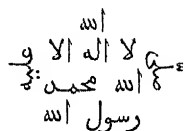 الله
لا اله الا
الله محمد
رسول الله